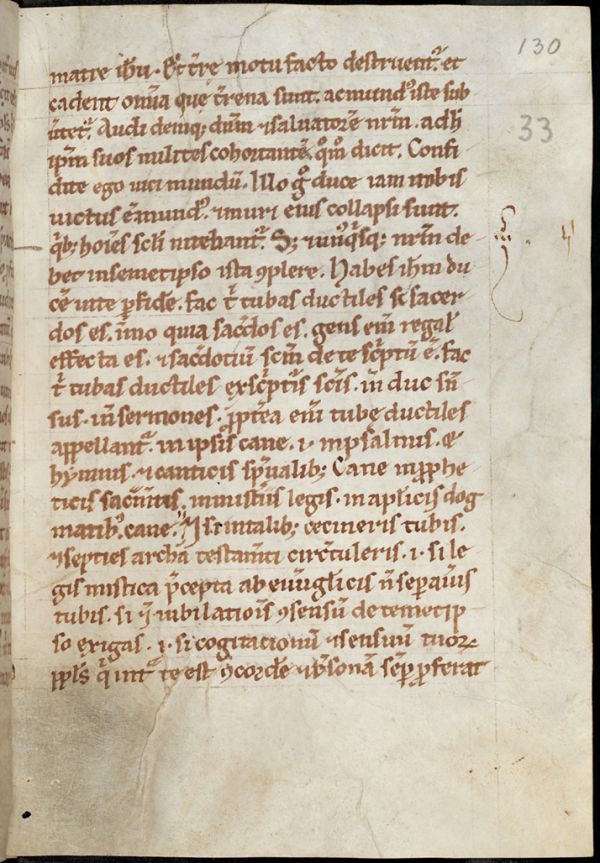 130
33
matre ihu. Et tr̄e motu facto destruent᷑. et
cadent om̄ia que t̄rena sunt. ac mundꝰ iste sub
Audi deniq; dn̄m ⁊ saluatorē nr̄m. adh
ip̄m suos milites cohortantē. dicit. Confi
dite ego uici mundū. Illo g̊ duce iam nobis
uictus ē mundꝰ. ⁊ muri eius collapsi sunt.
q̇b; hoīes sc̄li nitebant᷑. S; ⁊ unꝰq̇sq; nr̄m de
bet in semetipso ista ꝯplere. Habes ihm du
cē fac t̄ tubas ductiles sacer
dos es. immo quia sac̄dos es. gens eni᷑ regal̓
effecta es. ⁊ sac̄dotiū sc̄m de te sc̄ptū ē. fac
t̄ tubas ductiles ex sc̄ptis̄ sc̄is. in̄ duc sn̄
sus. in̄ sermones. ꝓpt̄ea eni᷑ tube ductiles
appellant᷑. in ipsis cane. .i. in psalmis. &
hymnis. ⁊ canticis sp̄ualib; Cane in ꝓphe
ticis sac̄m̄tis. ministīis legis. in aplicis dog
matibꝰ. cane. cecineris tubis.
⁊ septies archā testam̄ti circ̄uleris. .i. si le
gis mistica p̄cepta ab euu᷑glicis n̄ sepaūis
tubis. si iubilatiois̄ ꝯsensū de temetip
so exigas. .i. si cogitationū ⁊ sensuū tuoꝝ
ppl̄s q̇ int᷑ te est ꝯcordē ⁊ ꝯsonā semp̱ ꝓferat